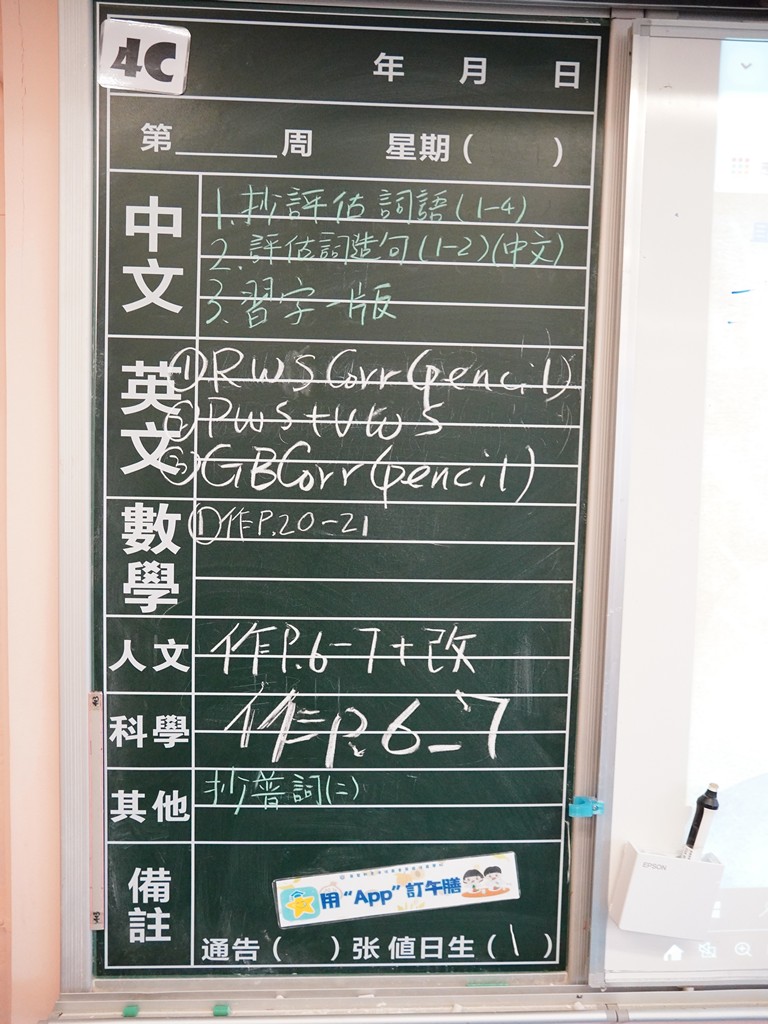 4C
年 月 日
第 周 星期( )
中文
1. 抄評估詞語(1-4)
2. 評估詞造句(1-2)(中文)
3. 習字一版
英文
① RWS Corr (pencil)
② PWS + VWS
③ GB Corr (pencil)
數學
① 作P.20-21
人文
作P.6-7+改
科學
作二P.6-7
其他
抄普詞(二)
備註
用“App”訂午膳
通告( )张 值日生(1)
EPSON